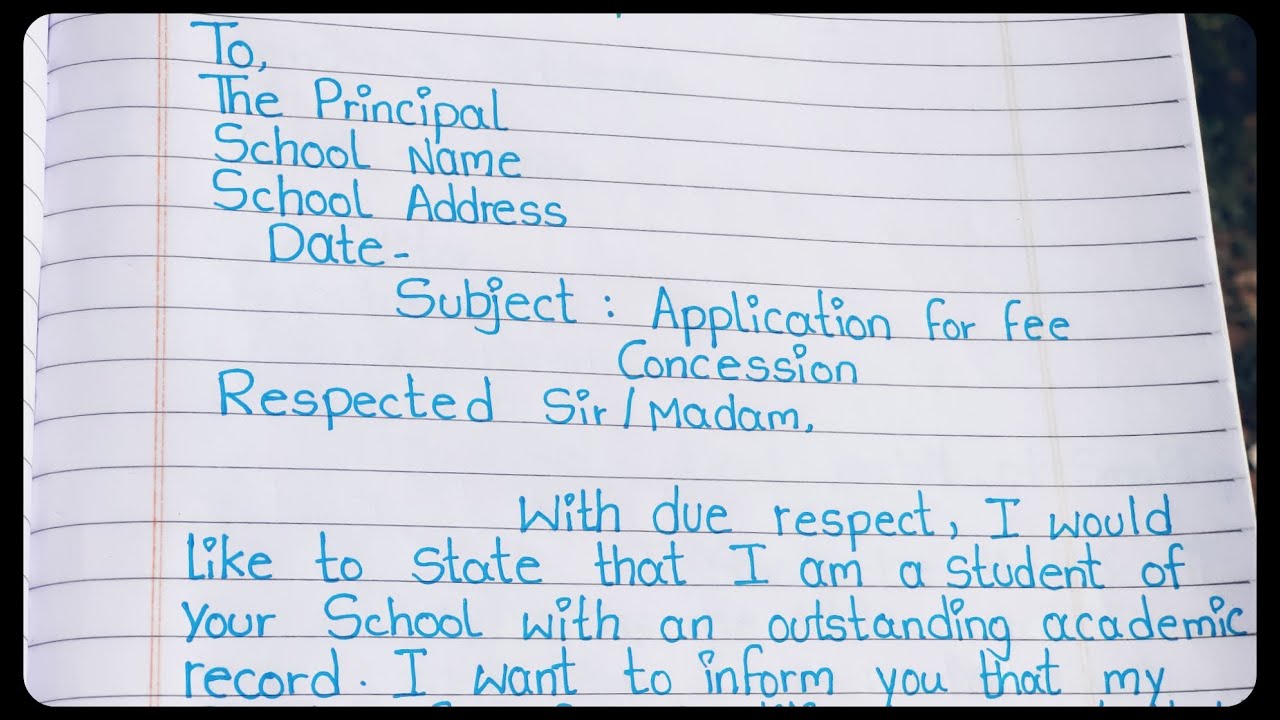 To,
The Principal
School Name
School Address
Date-
Subject : Application for fee
Concession
Respected Sir/Madam,
With due respect, I would
like to state that I am a student of
your School with an outstanding academic
record. I want to inform you that my